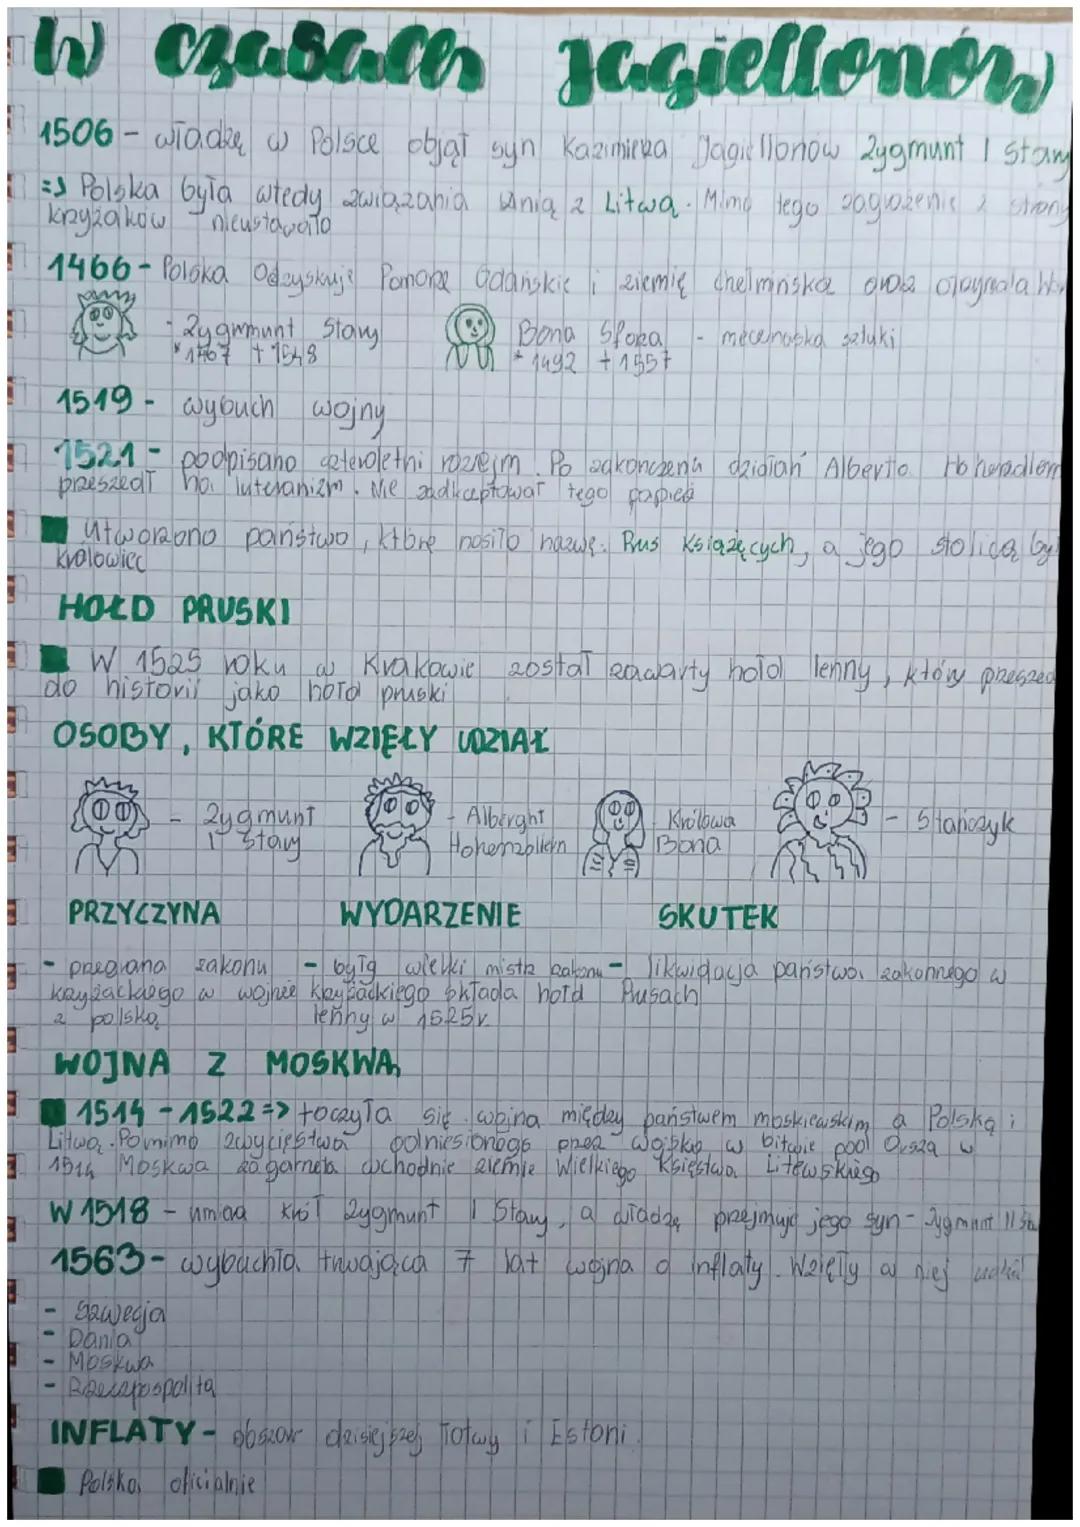 W czasach Jagiellonów
1506 - władzę w Polsce objął syn Kazimierza Jagiellonów Zygmunt I Stary
=> Polska była wtedy związania unią z Litwą. Mimo tego zagrożenie z strony
krzyżaków nieustawało
1466 - Polska Odzyskuje Pomorze Gdańskie i ziemię chełmińską oraz
- Zygmunt Stary
* 1467 + 1548
Bona Sforza - mecenaska sztuki
* 1492 + 1557
1519 - wybuch wojny
1521 - podpisano czteroletni rozejm. Po zakończeniu działań
przeszedł na luteranizm. Nie zadkceptował tego papież
Utworzono państwo, które nosiło nazwę: Prus Książęcych, a jego stolicą był
Królowiec
HOŁD PRUSKI
W 1525 roku w Krakowie został zawarty hołd lenny, który przeszed
do historii jako hołd pruski
OSOBY, KTÓRE WZIĘŁY UDZIAŁ
- Zygmunt
I Stary
- Albreght
Hohenzollern
Królowa
Bona
- Stańczyk
PRZYCZYNA WYDARZENIE SKUTEK
- przegrana zakonu - były wielki mistrz zakonu - likwidacja państwa zakonnego w
krzyżackiego w wojnie krzyżackiego składa hołd Prusach
z polską lenny w 1525r.
WOJNA Z MOSKWĄ
1514 - 1522 => toczyła się wojna między państwem moskiewskim a Polską i
Litwą. Pomimo zwycięstwa odniesionego przez wojsko w bitwie pod Orszą w
1514 Moskwa zagarnęła wchodnie ziemie Wielkiego Księstwa Litewskiego
W 1518 - umiera król Zygmunt I Stary, a władzę przejmuje jego syn - Zygmunt II
1563 - wybuchła trwająca 7 lat wojna o inflaty. Wzięły w niej udział
- Szwecja
- Dania
- Moskwa
- Rzeczpospolita
INFLATY - obszar dzisiejszej Łotwy i Estoni.
Polska oficialnie